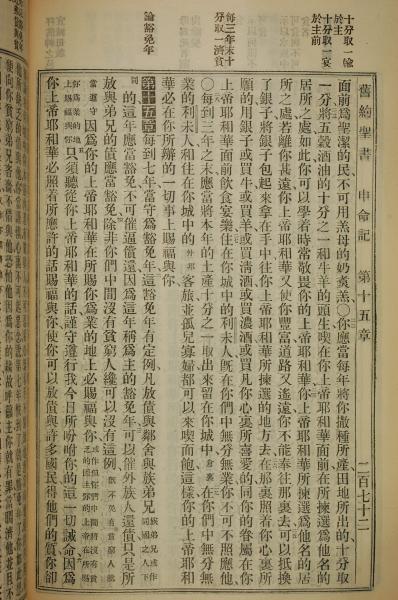 舊約聖書 申命記 第十五章 二百七十二
十分取一喻於主
十分取一宴於主前
每三年末十分取一濟貧
論豁免年
面前爲聖潔的民不可用羔母的奶煮羔○你應當每年將你撒種所產田地所出的十分取
一分將五穀酒油的十分之一和牛羊的頭生喫在你上帝耶和華面前在所揀選爲他名的
居所之處如此你可以學着時常敬畏你的上帝耶和華你上帝耶和華所揀選爲他名的居
所之處若離你甚遠你上帝耶和華又使你豐富道路又遙遠你不能奉往那裏去可以抵換
了銀子將銀子包起來拿在手中往你上帝耶和華所揀選的地方去在那裏照着你心裏所
願的用銀子或買牛或買羊或買清酒或買濃酒或買凡你心裏所喜愛的同你的眷屬在你
上帝耶和華面前飲食宴樂住在你城中的利未人旣在你們中無分無業你不可不照應他
○每到三年之末應當將本年的土產十分之一取出來留在你城中倉裏在你們中無分無
業的利未人和住在你城中的外邦客旅並孤兒寡婦都可以來喫而飽這樣你的上帝耶和
華必在你所辦的一切事上賜福與你
第十五章每到七年當守爲豁免年這豁免年有定例凡放債與鄰舍與族弟兄族弟兄或作同國之人下
同的這年應當豁免不可催逼償還因爲這年稱爲主的豁免年可以催外族人還債只是所
放與弟兄的債應當豁免除非你們中間沒有貧窮人纔可以沒有這例
當遵守因爲你的上帝耶和華在所賜你爲業的地上必賜福與你
只須聽從你上帝耶和華的話謹守遵行我今日所吩咐你的這一切誡命因爲
你上帝耶和華必照着所應許的話賜福與你使你可以放債與許多國民得他們的質你卻